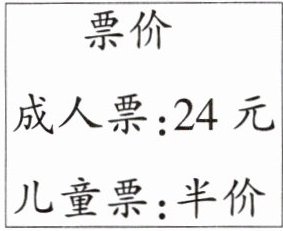 票价
成人票:24 元
儿童票:半价